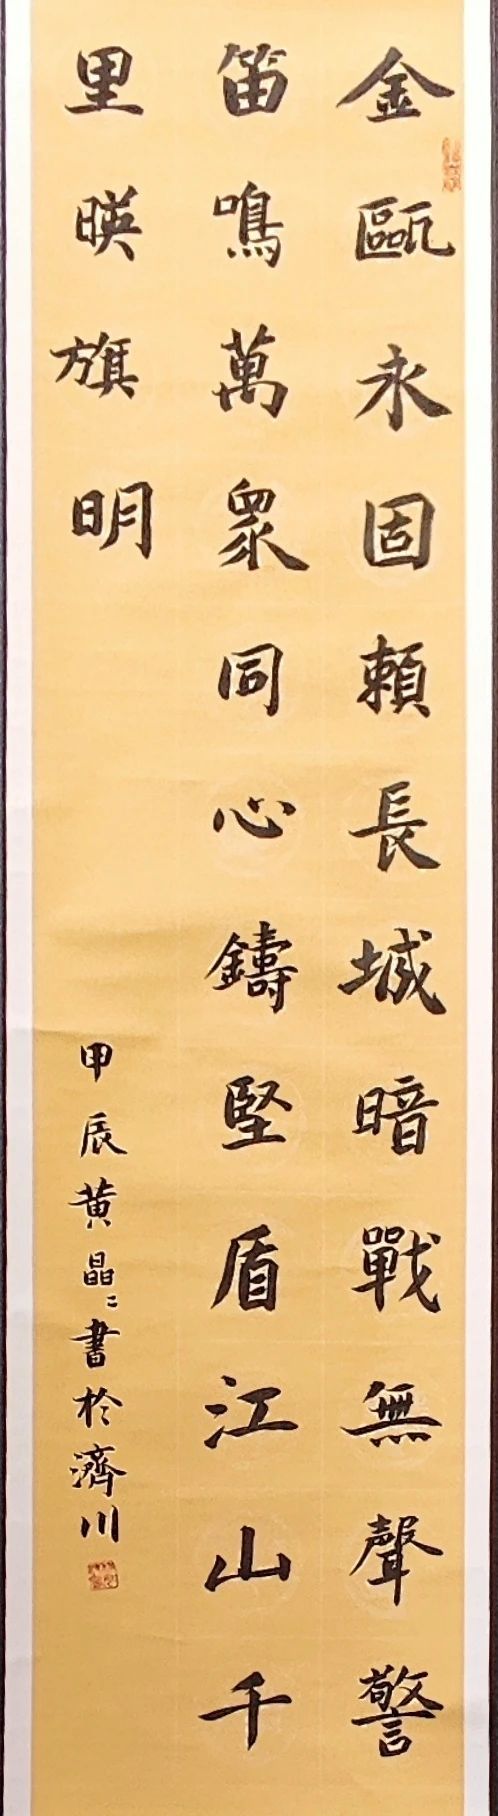 金甌永固賴長城暗戰無聲警
笛鳴萬眾同心鑄堅盾江山千
里暎旗明
甲辰黄晶〻書於濟川